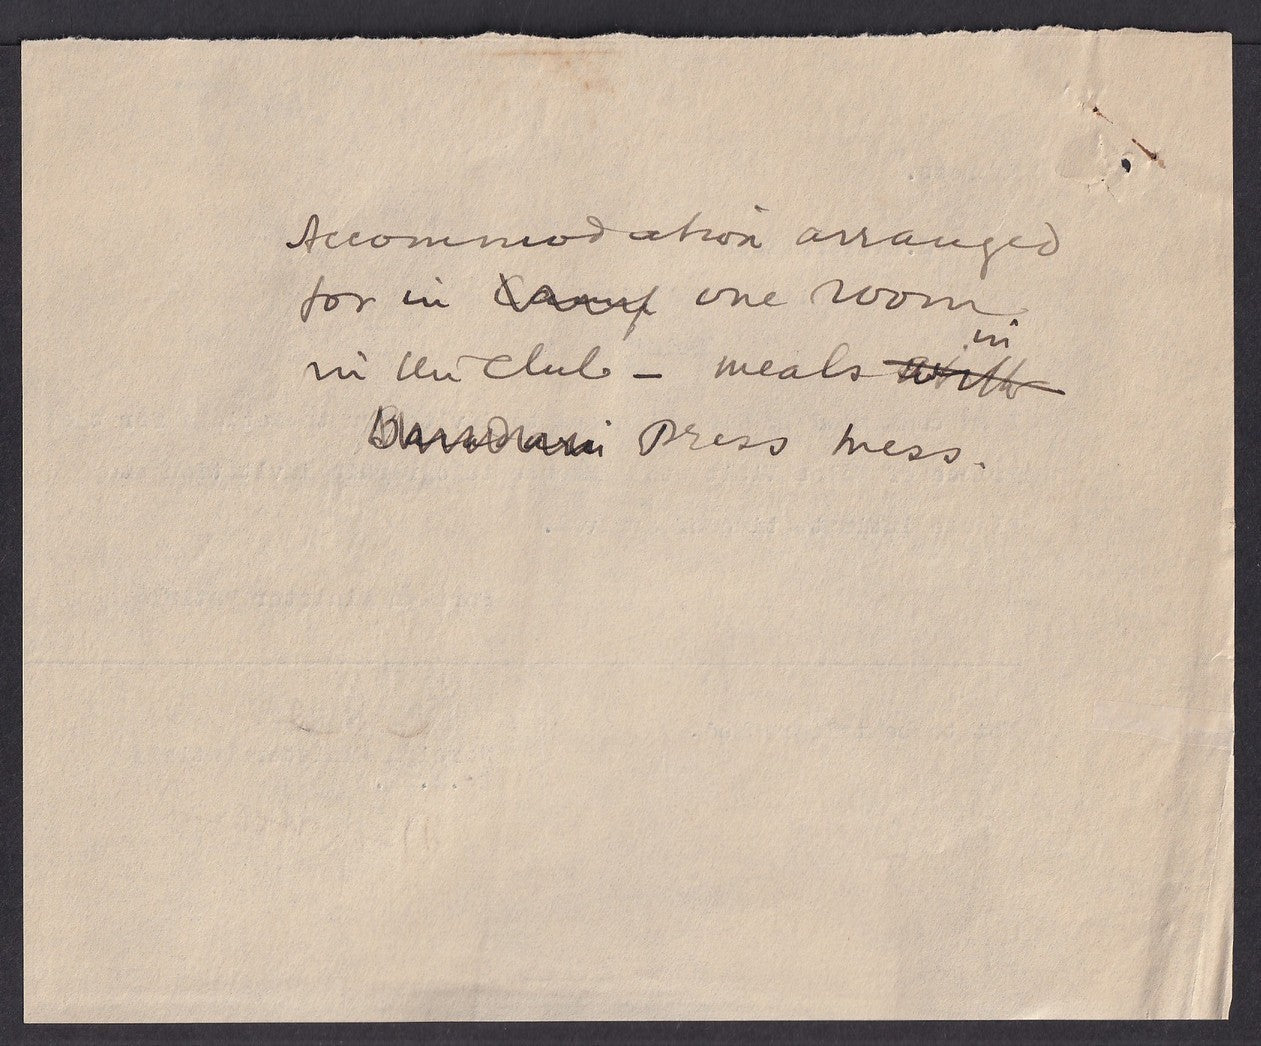 Accommodation arranged
for in Camp one room
in the Club – meals with in
Press Mess.